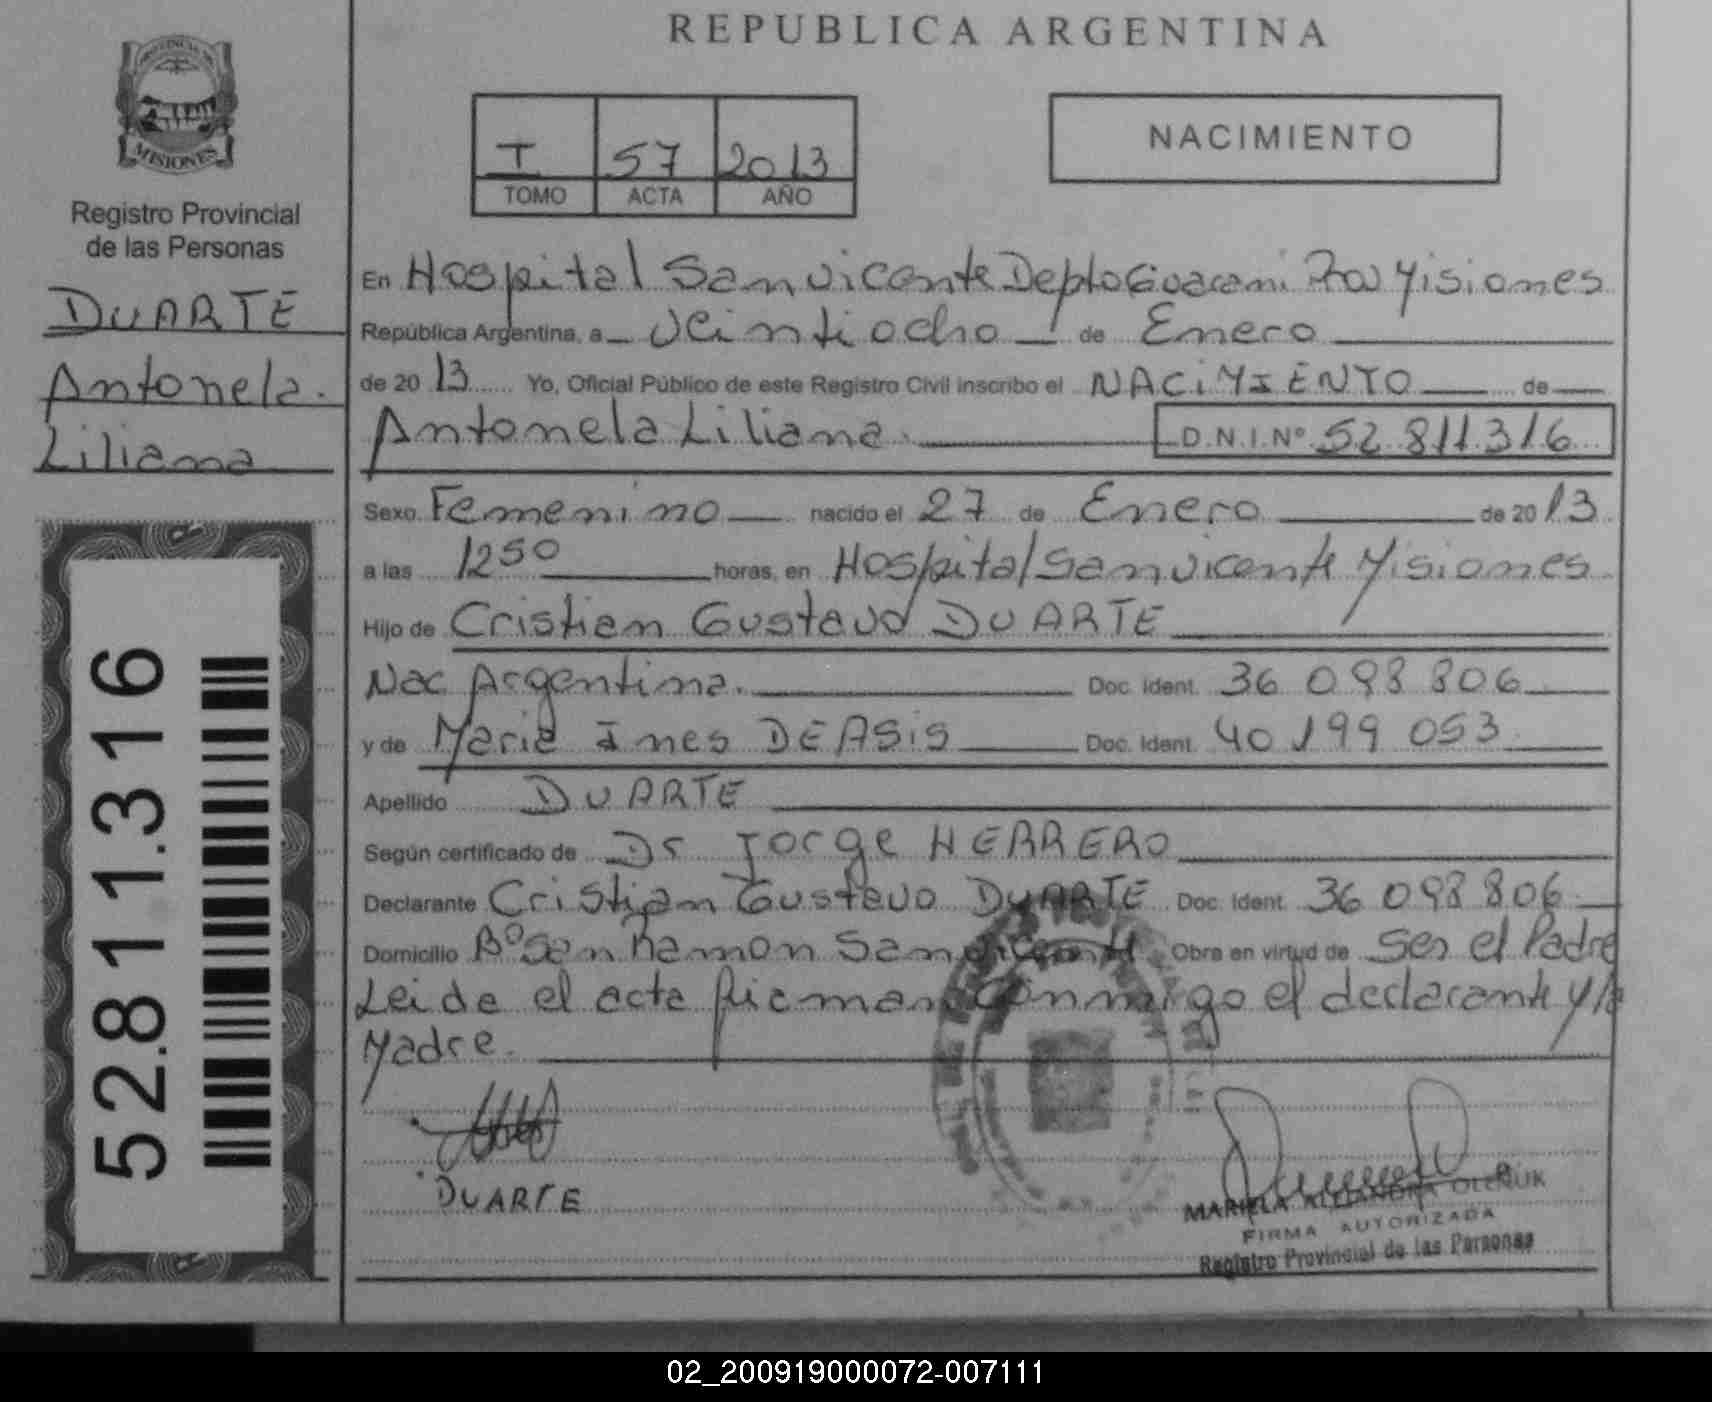 REPUBLICA ARGENTINA
PROVINCIA DE
MISIONES
Registro Provincial
de las Personas
DUARTE
Antonela.
Liliana
52.811.316
I 57 2013
TOMO ACTA AÑO
NACIMIENTO
En Hospital San vicente Depto Guarani Misiones
República Argentina, a veintiocho de Enero
de 2013 Yo, Oficial Público de este Registro Civil inscribo el NACIMIENTO de
Antonela Liliana. D.N.I.Nº 52.811.316
Sexo Femenino nacido el 27 de Enero de 2013
a las 12 50 horas, en Hospital San vicente Misiones
Hijo de Cristian Gustavo DUARTE
Nac Argentina. Doc. Ident. 36 098 806
y de Maria Ines DEASIS Doc. Ident. 40 199 053
Apellido DUARTE
Según certificado de Dr Jorge HERRERO
Declarante Cristian Gustavo DUARTE Doc. Ident. 36 098 806
Domicilio Bº San Ramon San vicente Obra en virtud de ser el Padre
Leida el acta firman conmigo el declarante y la
Madre.
DUARTE
MARIELA ALEJANDRA OLENIUK
FIRMA AUTORIZADA
Registro Provincial de las Personas
02_200919000072-007111